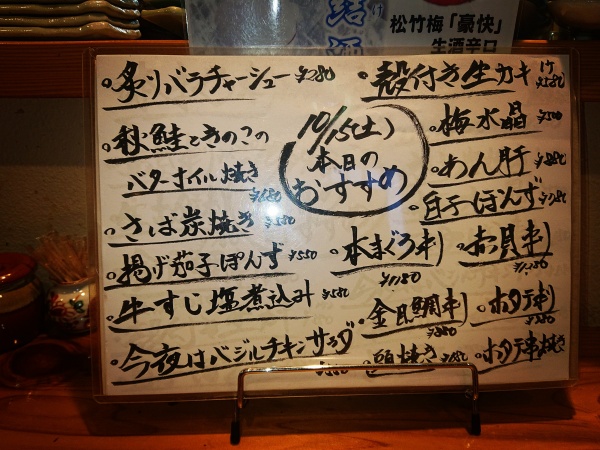 松竹梅「豪快」
生酒辛口
10/15(土)
本日の
おすすめ
炙りバラチャーシュー
秋鮭ときのこの
バターホイル焼き
さば炭焼き ¥550
揚げ茄子ぽんず ¥550
牛すじ塩煮込み ¥580
今夜はバジルチキンサラダ
殻付き生カキ
梅水晶 ¥500
あん肝
白子ぽんず
本まぐろ刺
¥1,180
赤貝刺
金目鯛刺
ホタテ刺
頭焼き
ホタテ串焼き